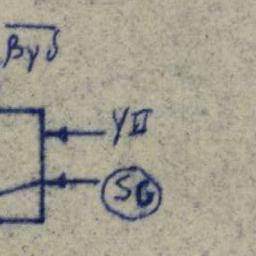 βγδ
YII
SG